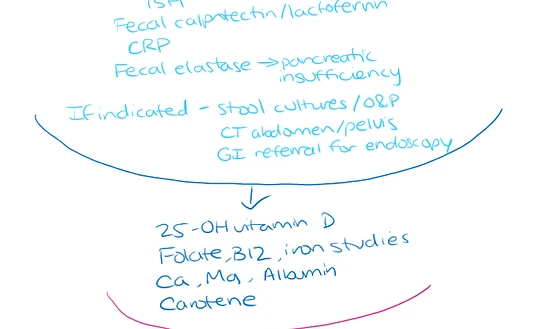 TSH
Fecal calprotectin/lactoferrin
CRP
Fecal elastase → pancreatic
insufficiency
If indicated - stool cultures/O&P
CT abdomen/pelvis
GI referral for endoscopy
25-OH vitamin D
Folate, B12, iron studies
Ca, Mg, Albumin
Carotene